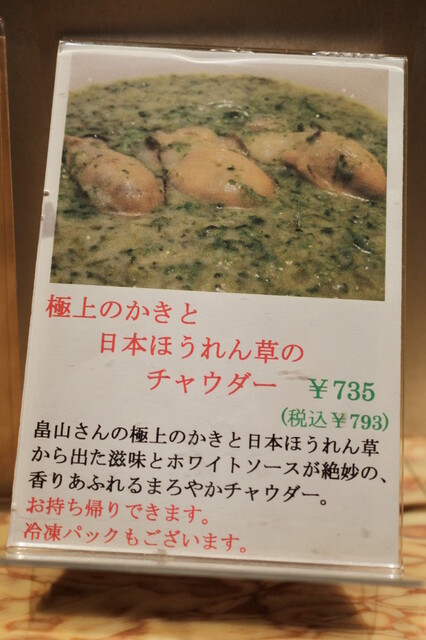 極上のかきと
日本ほうれん草の
チャウダー ¥735
(税込¥793)
畠山さんの極上のかきと日本ほうれん草
から出た滋味とホワイトソースが絶妙の、
香りあふれるまろやかチャウダー。
お持ち帰りできます。
冷凍パックもございます。